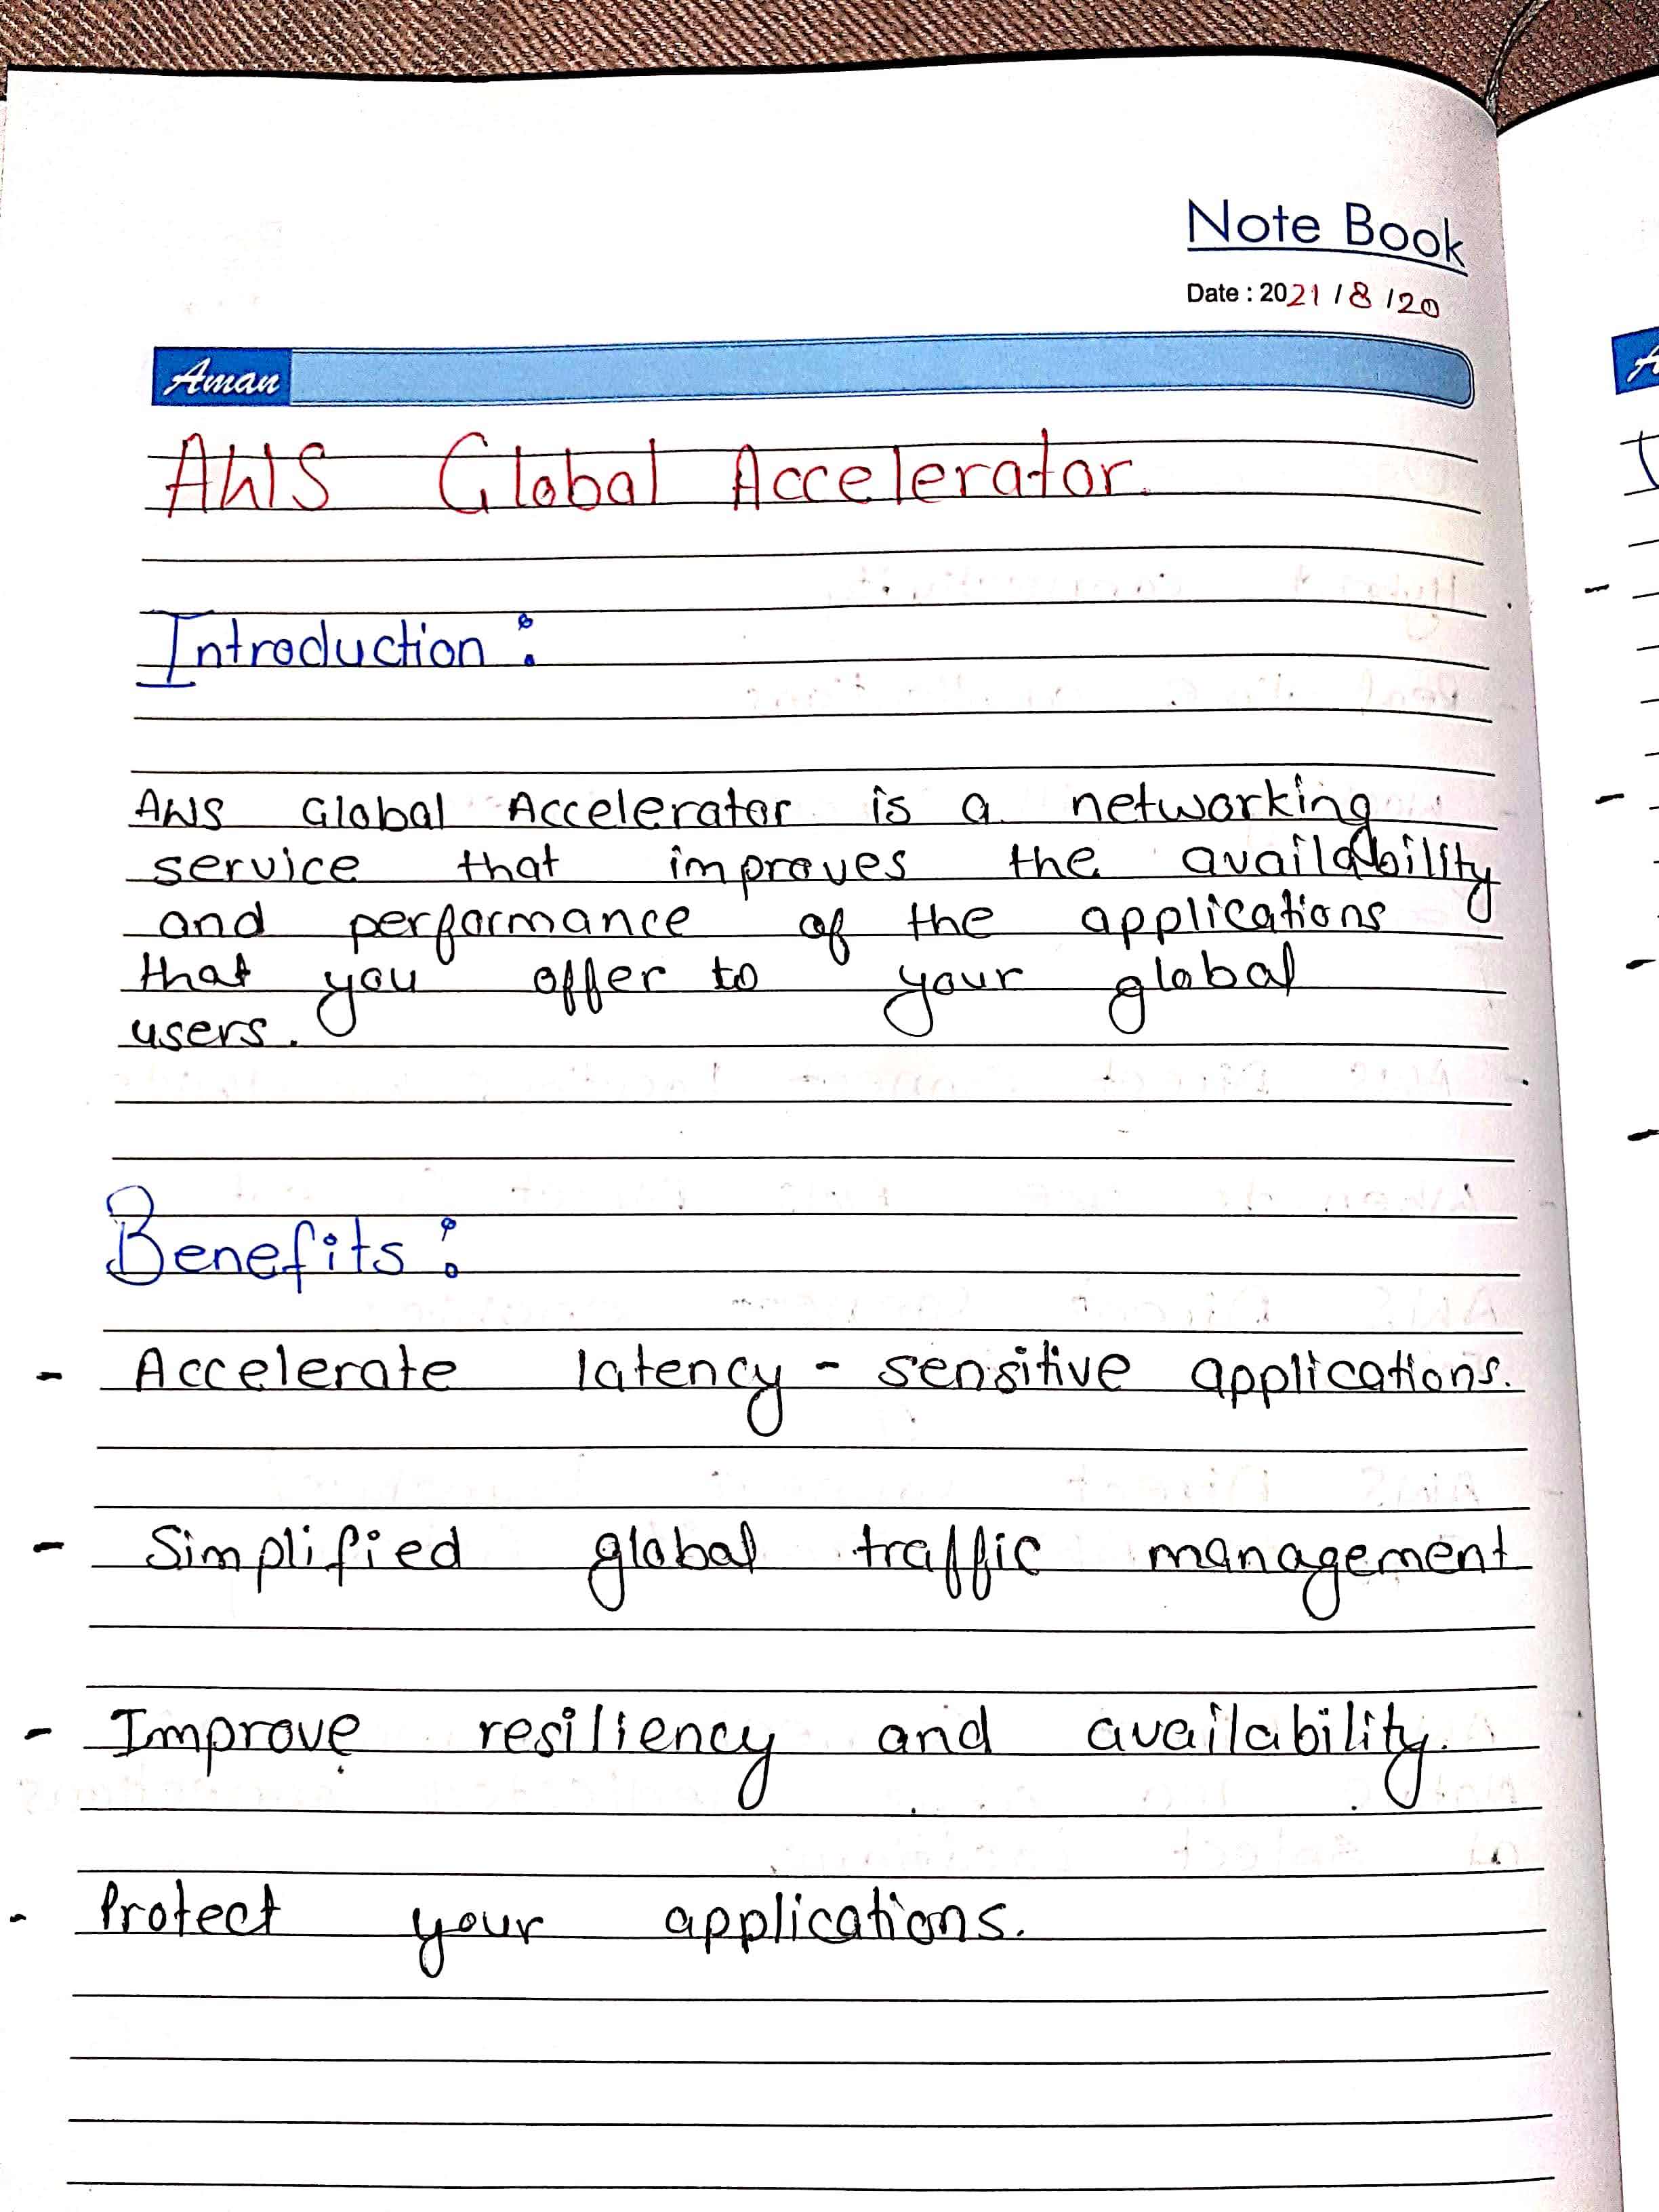 Note Book
Date : 2021 / 8 / 20
Aman
AWS Global Accelerator.
Introduction :
AWS Global Accelerator is a networking
service that improves the availability
and performance of the applications
that you offer to your global
users.
Benefits :
- Accelerate latency - sensitive applications.
- Simplified global traffic management
- Improve resiliency and availability.
- Protect your applications.